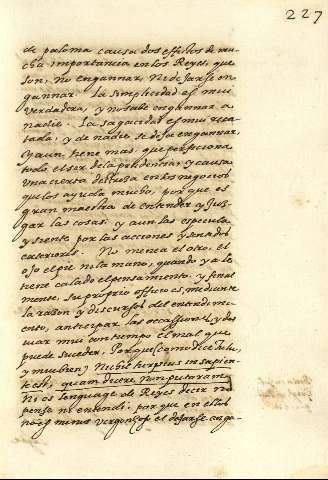 227
de paloma causa dos effetos de mu-
cha importancia en los Reyes, que
son, no engannar, ni dejarse en
gannar. la simplicidad es mui
verdadera, y no sabe engannar a
nadie. La sagacidad es mui reca-
tada, y de nadie se deja engannar,
y aun tiene mas, que perficiona
todo el ser de la prudencia, y causa
una cierta destreza en los negocios
que los ayuda mucho, por que es
gran maestra de entender y juz-
gar las cosas, y aun las especula
y siente por las acciones y sentidos
exteriores. No menea el otro, el
ojo el pie ni la mano, quando ya le
tiene calado el pensamiento. y final
mente, su proprio officio es, mediante
la razon y discurso del entendimi-
ento, anticipar las occasiones, y des
viar mui con tiempo el mal que
puede suceder. Porque como dice Tulio,
y mui bien, Nihil turpius in sapien-
te est, quam dicere, non putaram.
No es lenguage de Reyes decir no
pense ni entendi: por que en ellos
no es menos vergonzoso el dejarse enga-